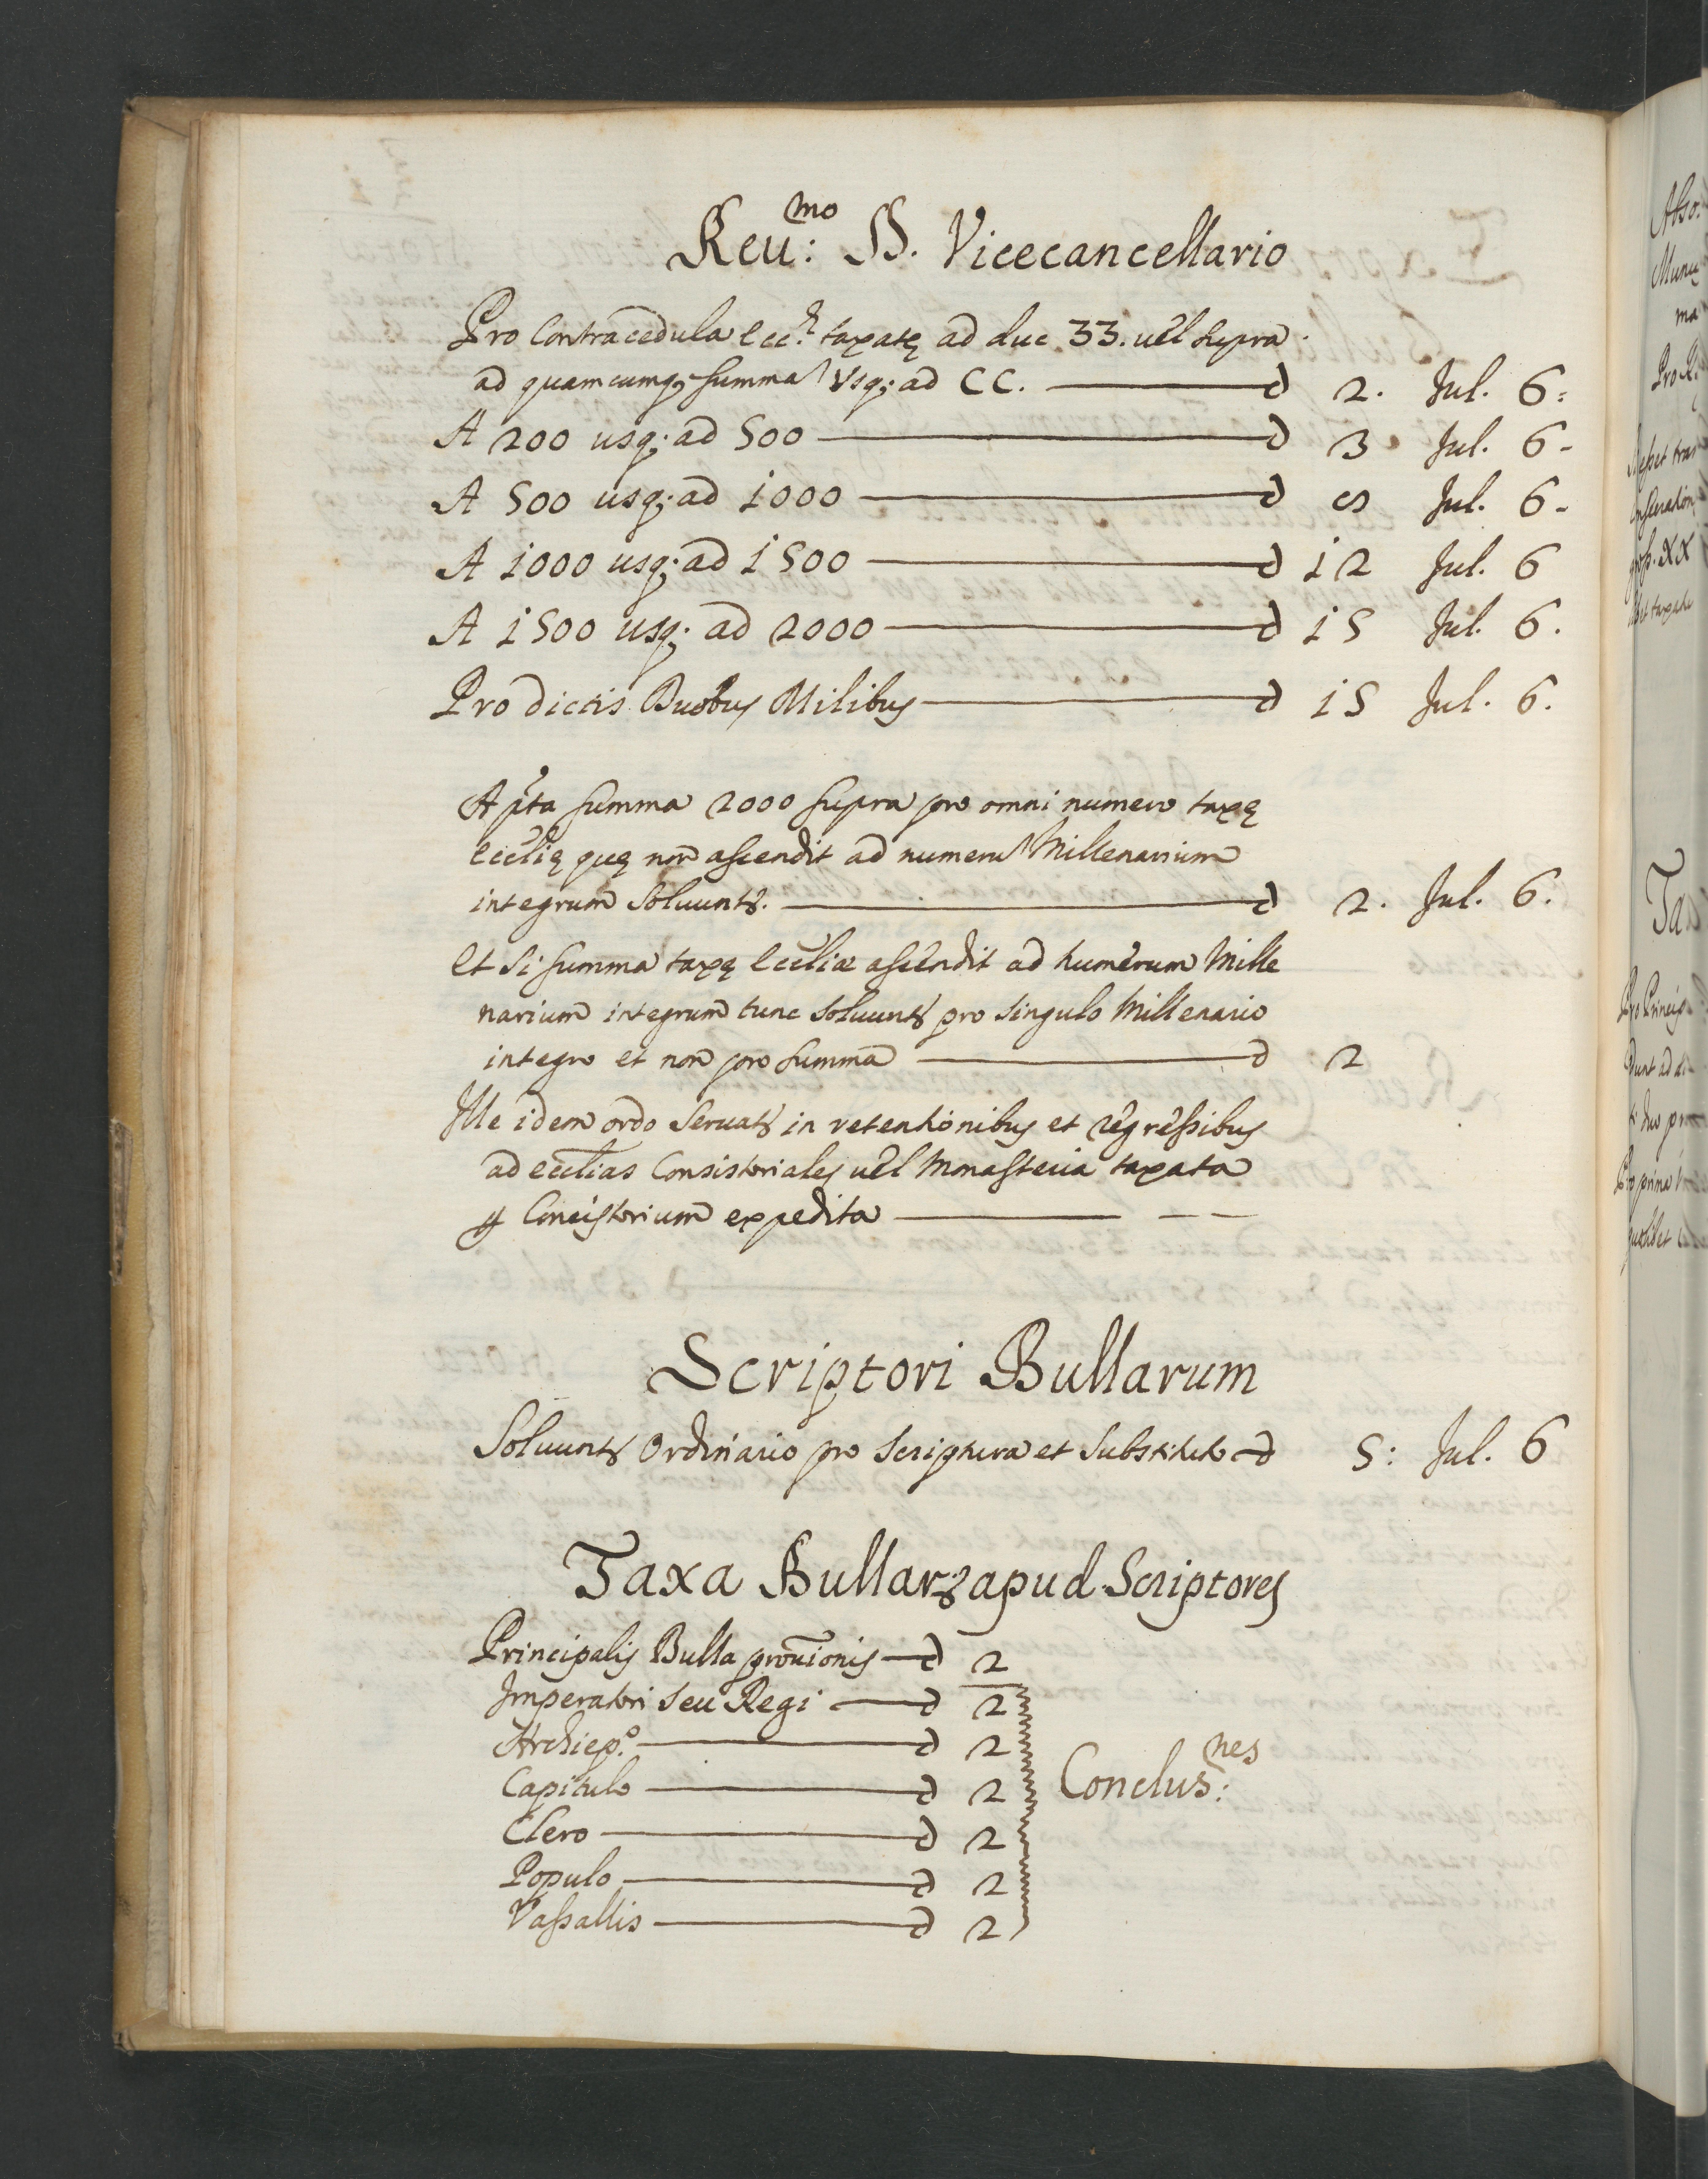 Reu:mo D. Vicecancellario
Pro Contracedula Ecc.e taxatę ad duc 33. uel supra
ad quamcumq; summa Vsq; ad CC. — d 2. Jul. 6:
A 200 usq; ad 500 — d 3 Jul. 6-
A 500 usq; ad 1000 — d Jul. 6-
A 1000 usq; ad 1500 — d 12 Jul. 6
A 1500 usq; ad 2000 — d 15 Jul. 6.
Pro dictis Duobus Milibus — d 15 Jul. 6.
A pta summa 2000 supra pro omni numero taxę
ecclię quę non ascendit ad numeru Millenarium
integrum Soluunt. — d 2. Jul. 6.
Et si summa taxę Eccliæ ascendit ad numerum Mille
narium integrum tunc Soluunt pro singulo Millenario
integro et non pro summa — d 2
Ille idem ordo Seruat in retentionibus et regressibus
ad ecclias Consistoriales uel Monasteria taxata
Concistorium expedita —
Scriptori Bullarum
Soluunt Ordinario pro Scriptura et Substituto — d 5: Jul. 6
Taxa Bullar apud Scriptores
Principalis Bulla prouionis — d 2
Imperatori seu Regi — d 2
Archiep.o — d 2
Capitulo — d 2
Conclus:nes
Clero — d 2
Populo — d 2
Vassallis — d 2